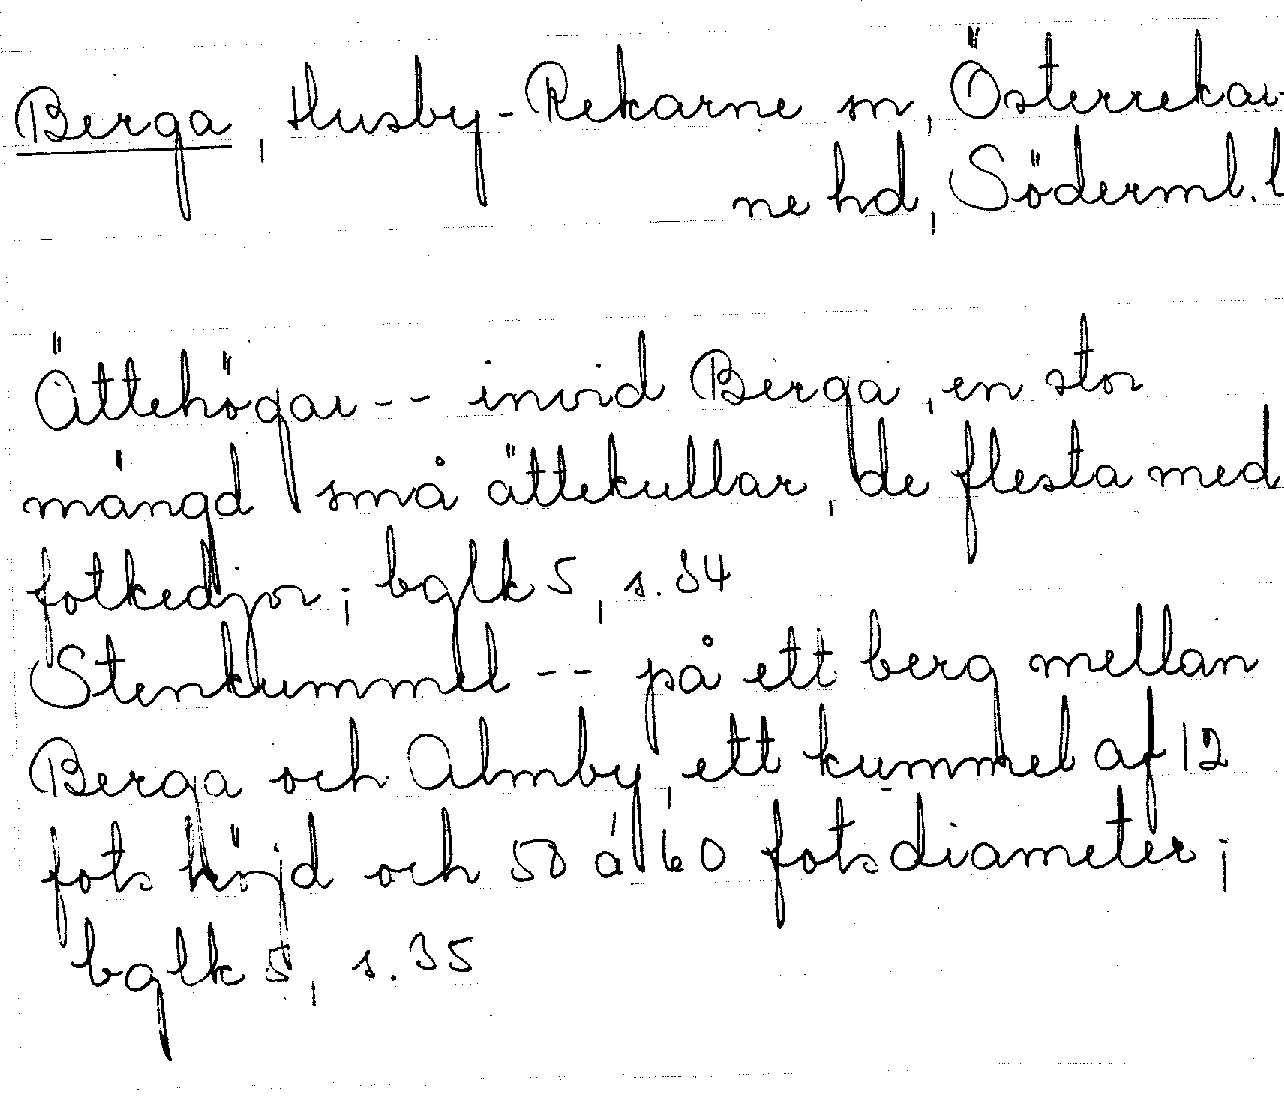 Berga, Husby-Rekarne sn, Österrekar-
ne hd, Söderml. l
Ättehögar -- invid Berga, en stor
mängd små ättekullar, de flesta med
fotkedjor; bglk 5, s. 34
Stenkummel -- på ett berg mellan
Berga och Almby, ett kummel af 12
fots höjd och 50 á 60 fots diameter;
bglk 5, s. 35